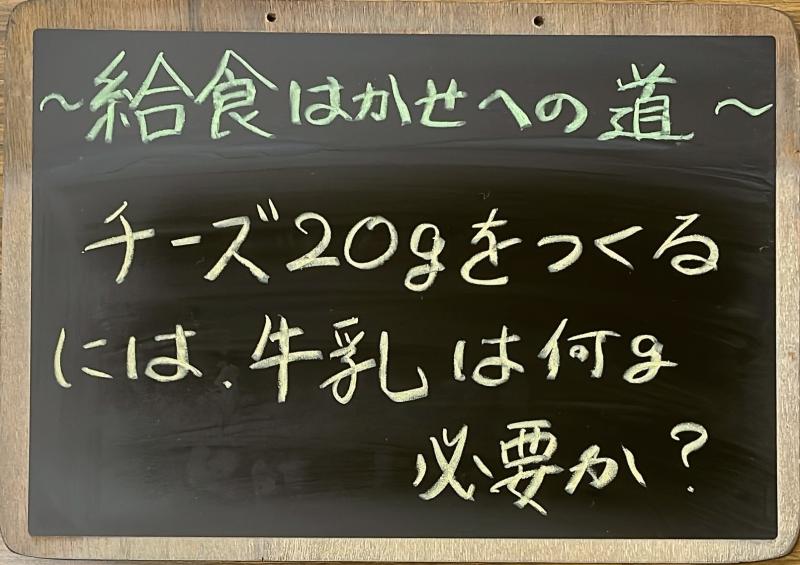 ～給食はかせへの道～
チーズ20gをつくる
には、牛乳は何g
必要か？